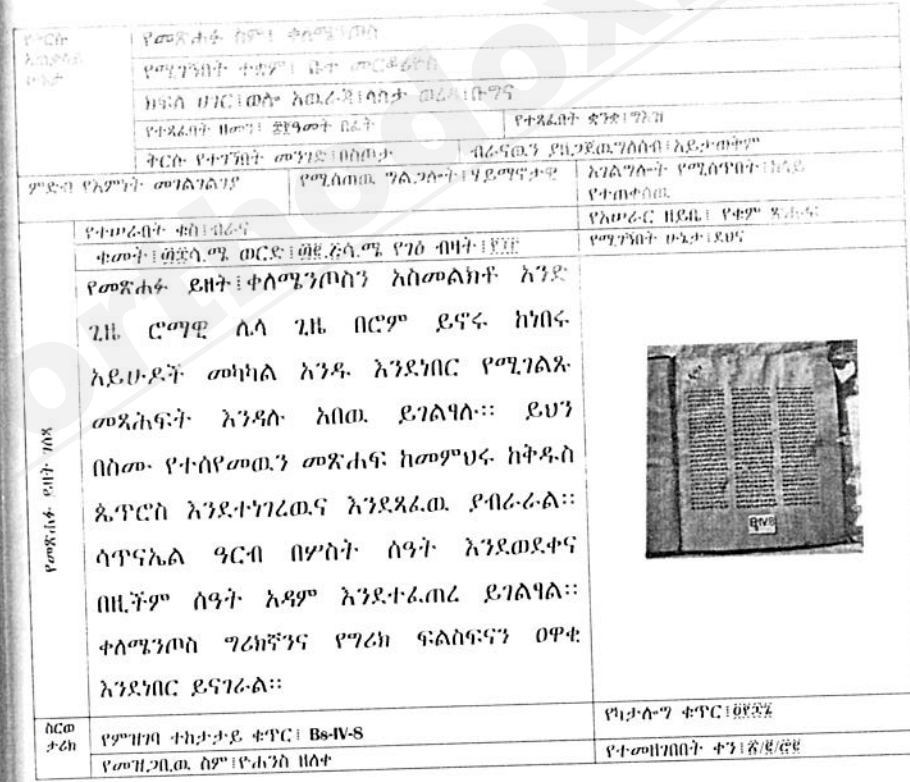 የመጽሐፉ ስም፤ ቀለሜንጦስ
የሚገኝበት ተቋም፤ ቤተ መርቆሬዎስ
ክፍለ ሀገር፤ወሎ አዉራጃ፤ላስታ ወረዳ፤ቡግና
የተጻፈበት ዘመን፤ በፊት የተጻፈበት ቋንቋ፤ግእዝ
ትርሱ የተገኘበት መንገድ፤በስጦታ ብራናዉን ያዘጋጀዉ ግለሰብ፤አይታወቅም
ምድብ የእምነት መገልገልገያ የሚሰጠዉ ግልጋሎት፤ሃይማኖታዊ አገልግሎት የሚሰጥበት፤ከላይ
የተጠቀሰዉ
የተሠራበት ቁስ፤ብራና የአሠራር ዘይቤ፤ የቁም ጽሑፍ
ቁመት፤ ሳ.ሜ ወርድ፤ ሳ.ሜ የገፅ ብዛት፤ የሚገኝበት ሁኔታ፤ደህና
የመጽሐፉ ይዘት ገለጻ
የመጽሐፉ ይዘት፤ቀለሜንጦስን አስመልክቶ አንድ
ጊዜ ሮማዊ ሌላ ጊዜ በሮም ይኖሩ ከነበሩ
አይሁዶች መካከል አንዱ እንደነበር የሚገልጹ
መጻሕፍት እንዳሉ አበዉ ይገልፃሉ። ይህን
በስሙ የተሰየመዉን መጽሐፍ ከመምህሩ ከቅዱስ
ጴጥሮስ እንደተነገረዉና እንደጻፈዉ ያብራራል።
ሳጥናኤል ዓርብ በሦስት ሰዓት እንደወደቀና
በዚችም ሰዓት አዳም እንደተፈጠረ ይገልፃል።
ቀለሜንጦስ ግሪክኛንና የግሪክ ፍልስፍናን ዐዋቂ
እንደነበር ይናገራል።
ስርወ ታሪክ
የምዝገባ ተከታታይ ቁጥር፤ Bs-IV-8 የካታሎግ ቁጥር፤
የመዝጋቢዉ ስም፤ዮሐንስ ዘለቀ የተመዘገበበት ቀን፤
orthodox